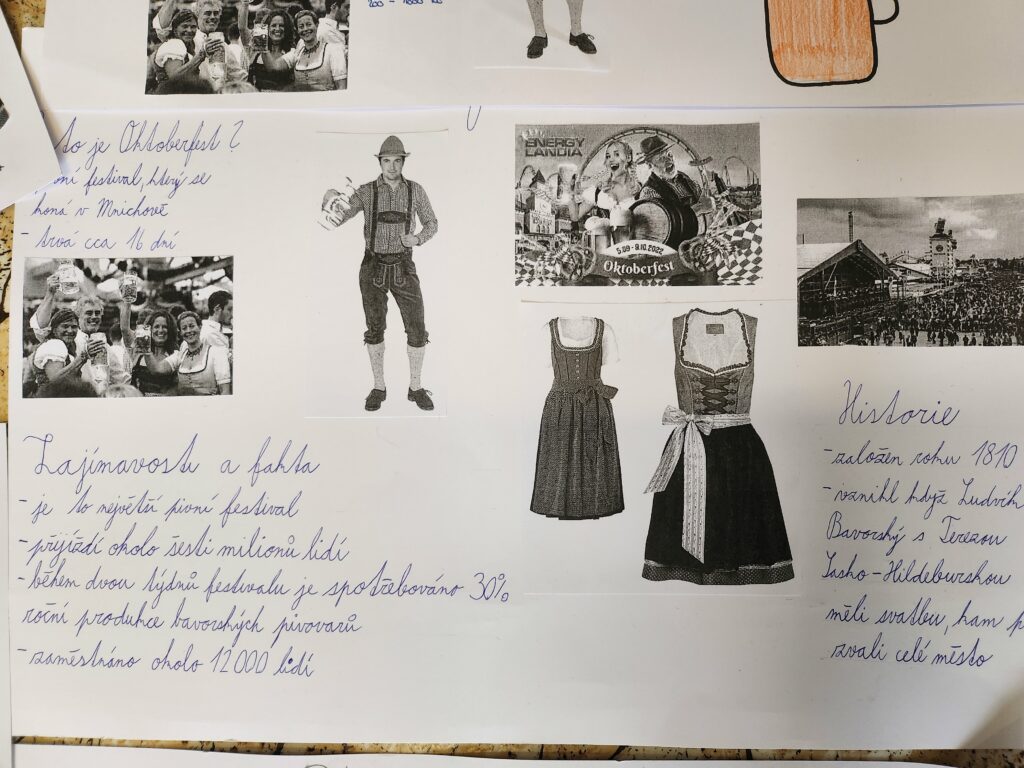 200 - 1000 Kč
to je Oktoberfest?
ní festival, který se
koná v Mnichově
- trvá cca 16 dní
ENERGY
LANDIA
5.09 - 9.10.2022
Oktoberfest
Zajímavosti a fakta
- je to největší pivní festival
- přijíždí okolo šesti milionů lidí
- během dvou týdnů festivalu je spotřebováno 30%
roční produkce bavorských pivovarů
- zaměstnáno okolo 12 000 lidí
Historie
- založen roku 1810
- vznikl když Ludvík
Bavorský s Terezou
Sasko-Hildeburskou
měli svatbu, kam p
zvali celé město